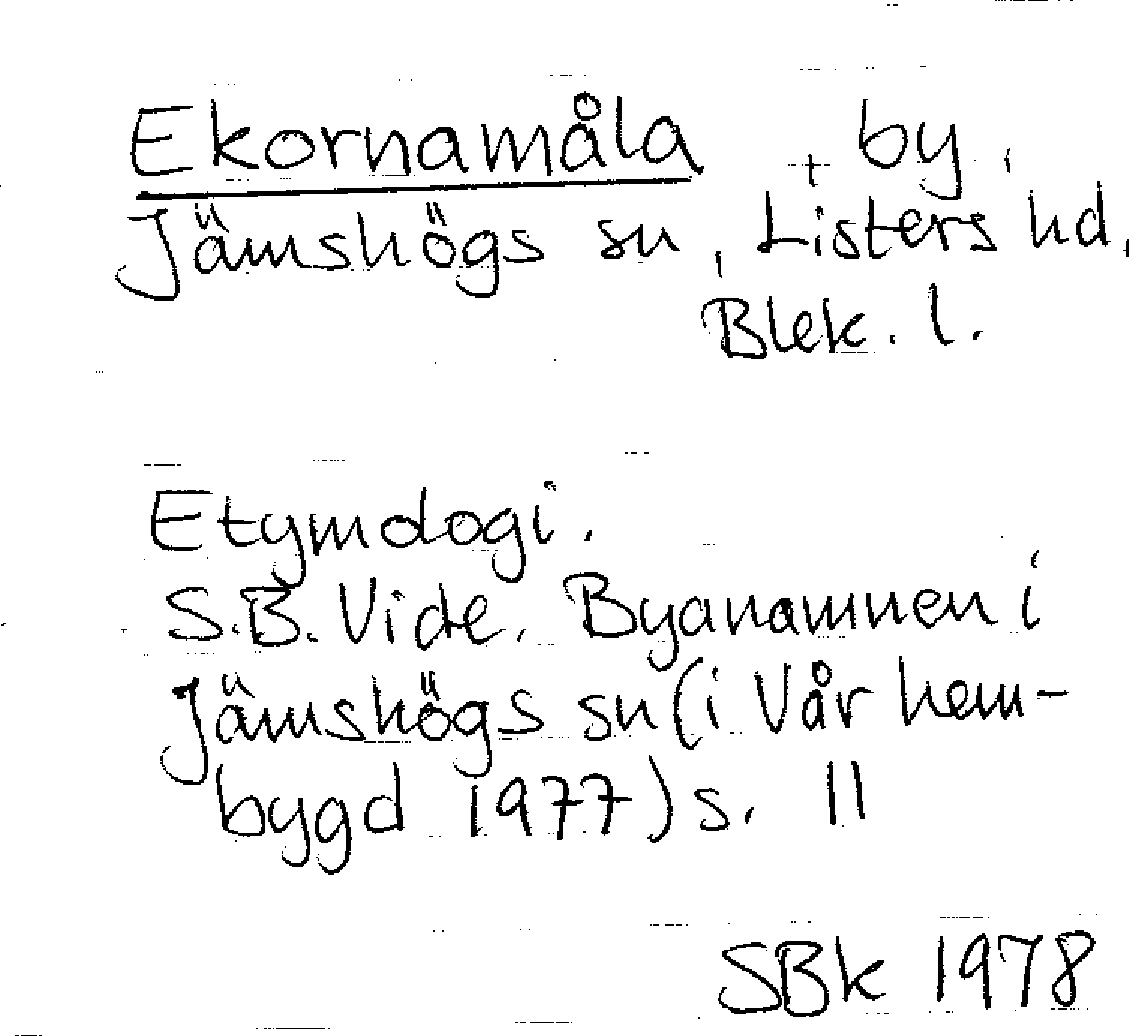 Ekornamåla + by.
Jämshögs sn, Listers hd,
Blek. l.
Etymologi.
S.B. Vide. Byanamnen i
Jämshögs sn (i Vår hem-
bygd 1977) s. 11
SBk 1978